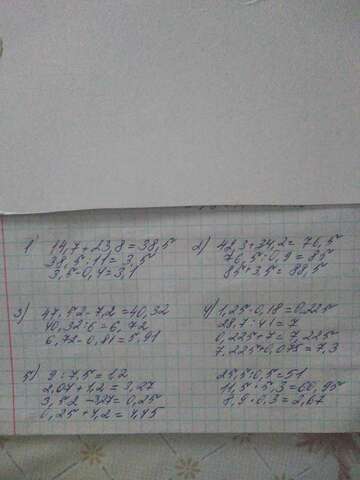 1) 14,7+23,8=38,5
38,5:11=3,5
3,5-0,4=3,1
2) 42,3+34,2=76,5
76,5:0,9=85
85+3,5=88,5
3) 47,52-7,2=40,32
40,32:6=6,72
6,72-0,81=5,91
4) 1,25·0,18=0,225
28,7:41=7
0,225+7=7,225
7,225+0,075=7,3
5) 9:7,5=1,2
2,07+1,2=3,27
3,52-327=0,25
0,25+4,2=4,45
25,5:0,5=51
11,5·5,3=60,95
8,9·0,3=2,67